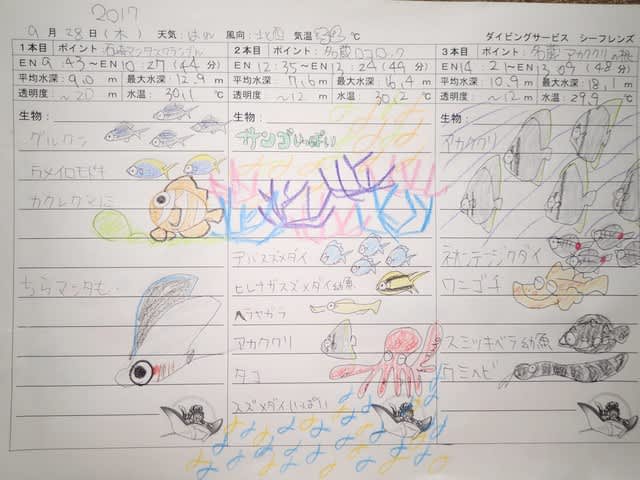 2017
9月 28日(木) 天気:はれ 風向:北西 気温 ℃ ダイビングサービス シーフレンズ
1本目 ポイント:石崎マンタスクランブル
EN 9:43〜EN 10:27(44分)
平均水深:9.0m 最大水深:12.9m
透明度 〜20m 水温:30.1℃
生物:
グルクン
ウメイロモドキ
カクレクマノミ
ちらマンタも・
2本目 ポイント:名蔵ロコロック
EN 12:35〜EN 13:24(49分)
平均水深:7.6m 最大水深:16.4m
透明度 〜12m 水温:30.2℃
生物:
サンゴいっぱい
デバスズメダイ
ヒレナガスズメダイ幼魚
ヘラヤガラ
アカククリ
タコ
スズメダイいっぱい
3本目 ポイント:名蔵 アカククリの根
EN 14:21〜EN 15:09(48分)
平均水深:10.9m 最大水深:18.1m
透明度 〜12m 水温:29.9℃
生物:
アカククリ
ネオンテンジクダイ
ワニゴチ
スミツキベラ幼魚
ウミヘビ